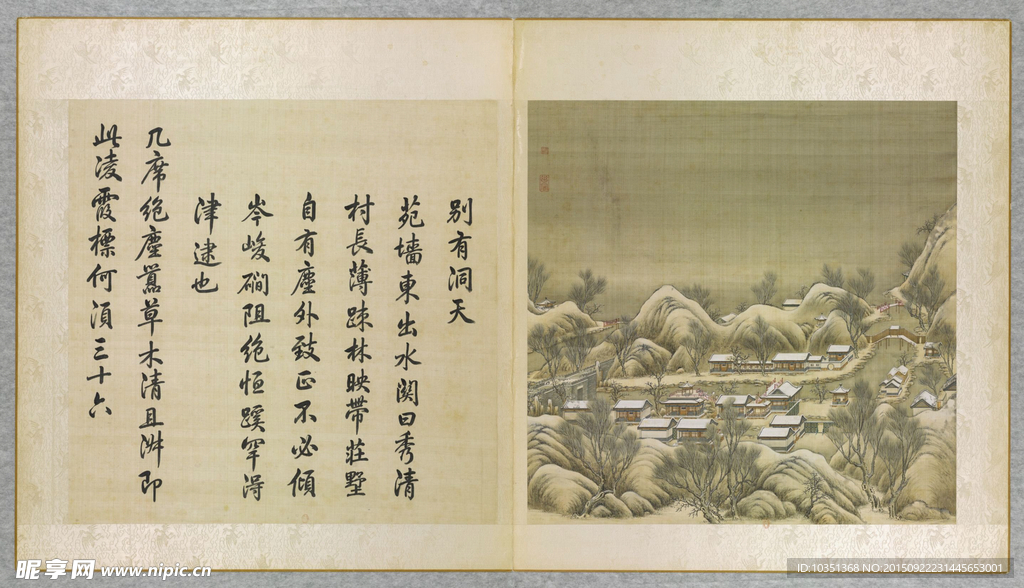 别有洞天
苑墻東出水關曰秀清
村長薄疎林映帶莊墅
自有塵外致正不必傾
岑峻磵阻絶恒蹊罕得
津逮也
几席絶塵囂草木清且淑即
此凌霞標何須三十六
昵享网 www.nipic.cn
ID:10351368 NO:20150922231445653001